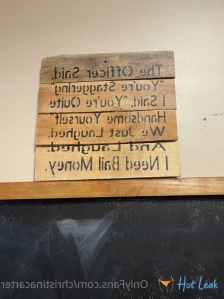 The Officer Said,
"You're Staggering"
I Said, "You're Quite
Handsome Yourself"
We Just Laughed.
And Laughed.
I Need Bail Money.
OnlyFans.com/christinacarter
Hot Leak